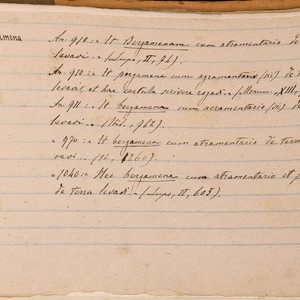 amena
An. 910 = It Bergamenam cum atramentario de
levavi = (Lupo, II, 96).
An. 910 = it pergamena cum agramentario (sic) de t
levavi, et hac cartula scrivere rogavi = (Monum. XIII,
An. 911 = it bergamena cum acramentario (sic)
levavi = (Ibi, 762).
" 970 = it bergamena cum atramentario de terra
vavi = (Ib, 1260).
" 1040 = Hec bergamena cum atramentario et p
de terra levavi = (Lupo, II, 605).